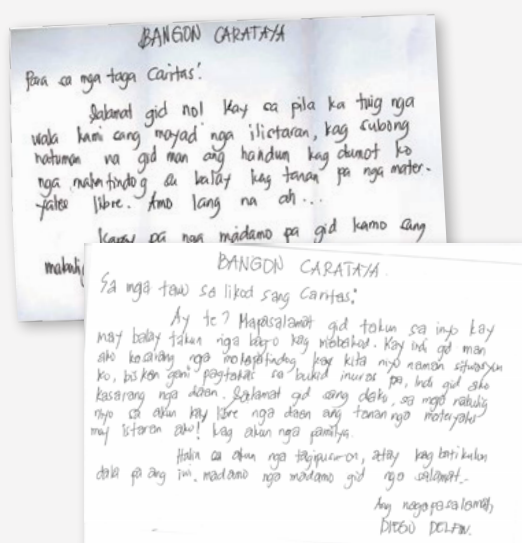 BANGON CARATAYA
Para sa mga taga Caritas!
Salamat gid no! Kay sa pila ka tuig nga
wala kami sang mayad nga ilistaran, kag subong
natuman na gid man ang handum kag ko
nga sa balay kag tanan pa nga mater-
yales libre. Amo lang na ah...
pa nga madamo pa gid kamo sang
BANGON CARATAYA.
Sa mga tawo sa likod sang Caritas:
Ay te? Mapasalamat gid takun sa inyo kay
may balay takun nga bag-o kag mabahod. Kay indi gid man
ako kasarang nga kag kita niyo naman sitwasyon
ko, biskan gani pagtakas sa bukid pa, indi gid ako
kasarang nga daan. Salamat gid sang dako, sa mga
niyo sa akun kay libre nga daan ang tanan nga materyales
may istaran ako! kag akun nga pamilya.
Halin sa akun nga tagipusuon, atay kag batikulon
dala pa ang ini, madamo nga madamo gid nga salamat.
Ang nagapasalamat,
DIEGO DELFIN.